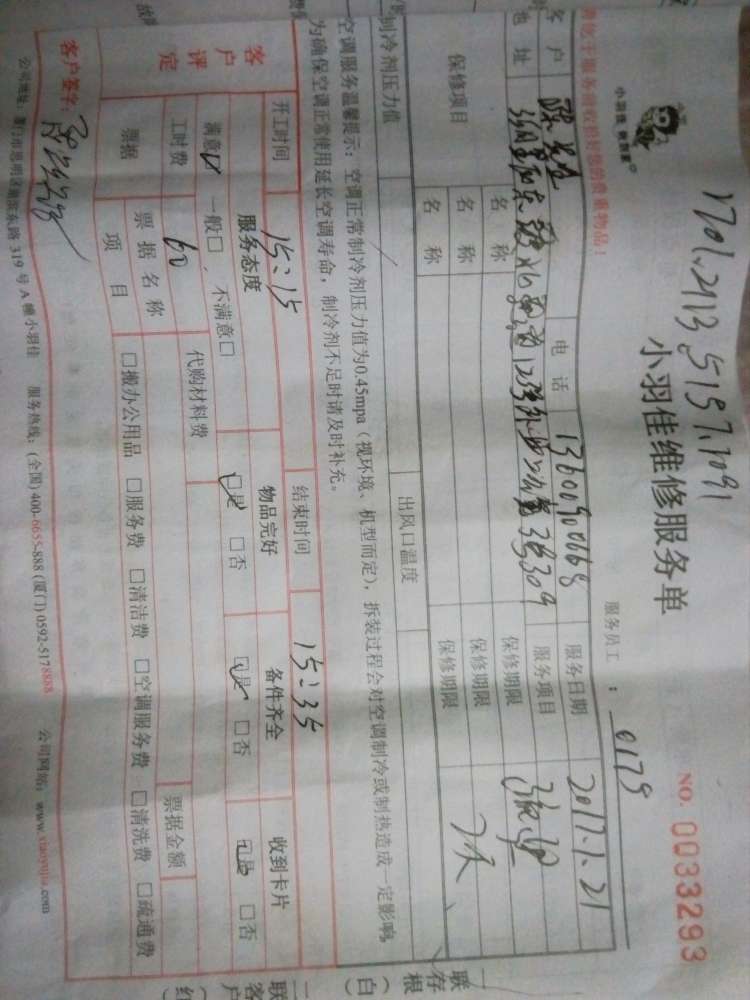 1701.2113.5157.7091
小羽佳 家到家
小羽佳维修服务单
NO. 0033293
服务员工：0179
服务前收拾好您的贵重物品！
客户 电话 13600900668 服务日期 2017.1.21
地址 12 3号309 服务项目
保修项目 名称 保修期限
名称 保修期限
名称 保修期限 7天
制冷剂压力值 出风口温度
空调服务温馨提示：空调正常制冷剂压力值为0.45mpa（视环境、机型而定），拆装过程会对空调制冷或制热造成一定影响，
为确保空调正常使用延长空调寿命，制冷剂不足时请及时补充。
开工时间 15:15 结束时间 15:35
客户评定 服务态度 物品完好 备件齐全 收到卡片
满意☑ 一般□ 不满意□ ☑是 □否 ☑是 □否 ☑是 □否
工时费 60 代购材料费
票据 票据名称 票据金额
项目 □搬办公用品 □服务费 □清洁费 □空调服务费 □清洗费 □疏通费
客户签字：
公司地址：厦门市思明区湖滨东路319号A幢小羽佳 服务热线：(全国) 400-6655-888 (厦门) 0592-5178888 公司网站：www.xiaoyujia.com
一联存根（白）
二联客户（红